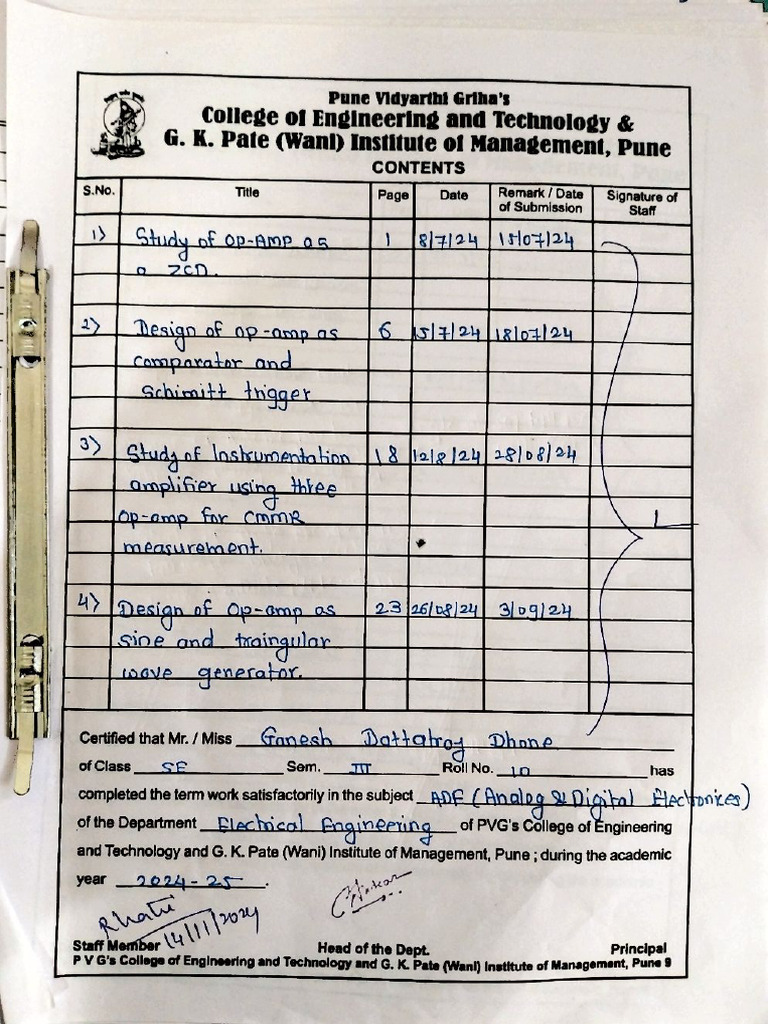 Pune Vidyarthi Griha's
College of Engineering and Technology &
G. K. Pate (Wani) Institute of Management, Pune
CONTENTS
S.No. Title Page Date Remark / Date of Submission Signature of Staff
1) Study of op-AMP as 1 8/7/24 15/07/24
a ZCD.
2) Design of op-amp as 6 15/7/24 18/07/24
comparator and
Schimitt trigger
3) Study of Instrumentation 18 12/8/24 28/08/24
amplifier using three
op-amp for CMMR
measurement.
4) Design of Op-amp as 23 26/08/24 3/09/24
sine and traingular
wave generator.
Certified that Mr. / Miss Ganesh Dattatray Dhone
of Class SE Sem. III Roll No. 10 has
completed the term work satisfactorily in the subject ADE (Analog & Digital Electronices)
of the Department Electrical Engineering of PVG's College of Engineering
and Technology and G. K. Pate (Wani) Institute of Management, Pune ; during the academic
year 2024-25.
14/11/2024
Staff Member Head of the Dept. Principal
P V G's College of Engineering and Technology and G. K. Pate (Wani) Institute of Management, Pune 9